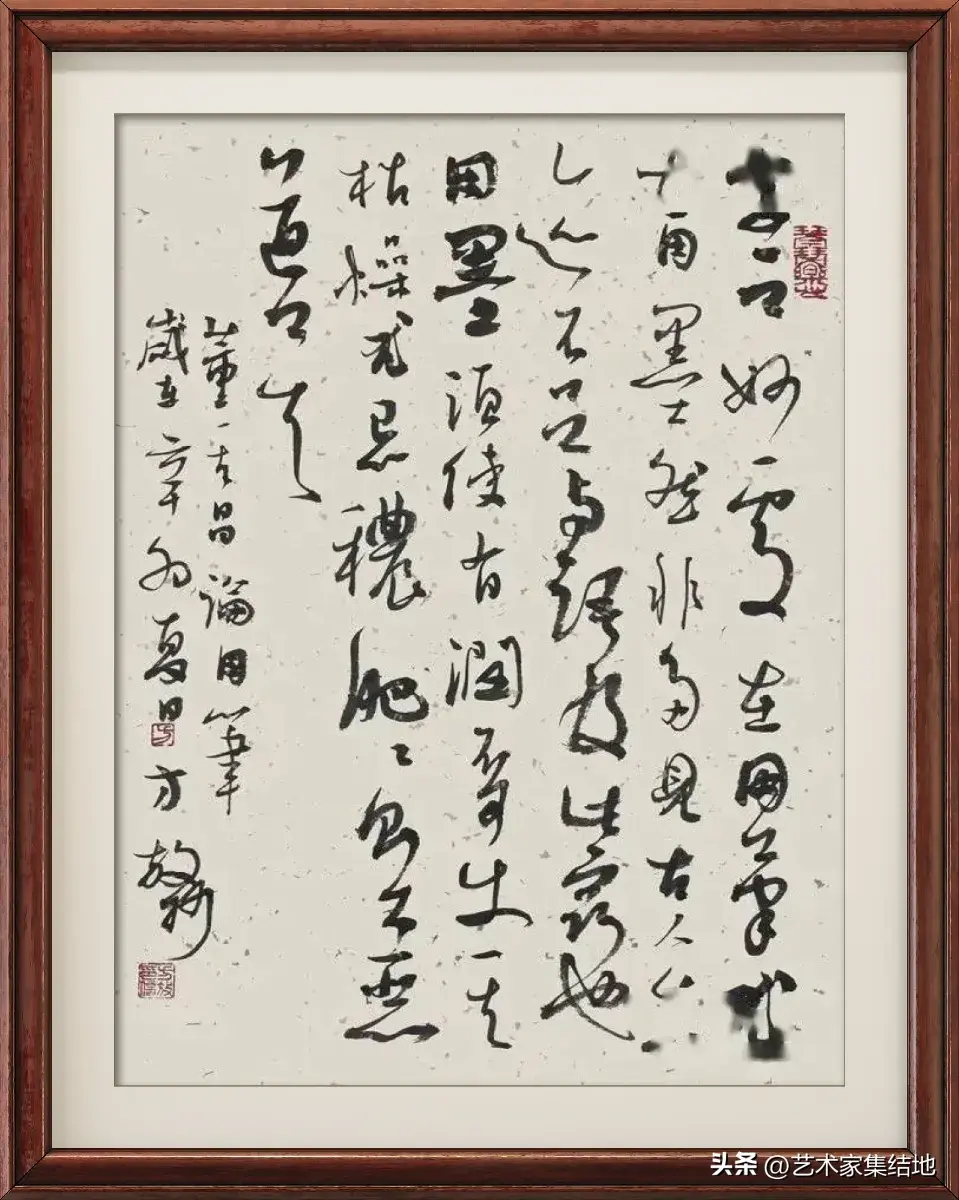 妙處在用筆
用墨然非多見古人
迹不足與語及此竅也
用墨須使有潤不可使其
枯燥尤忌穠肥〻則大惡
道矣
董其昌論用筆
歲在辛 夏日 方放
头条 @艺术家集结地